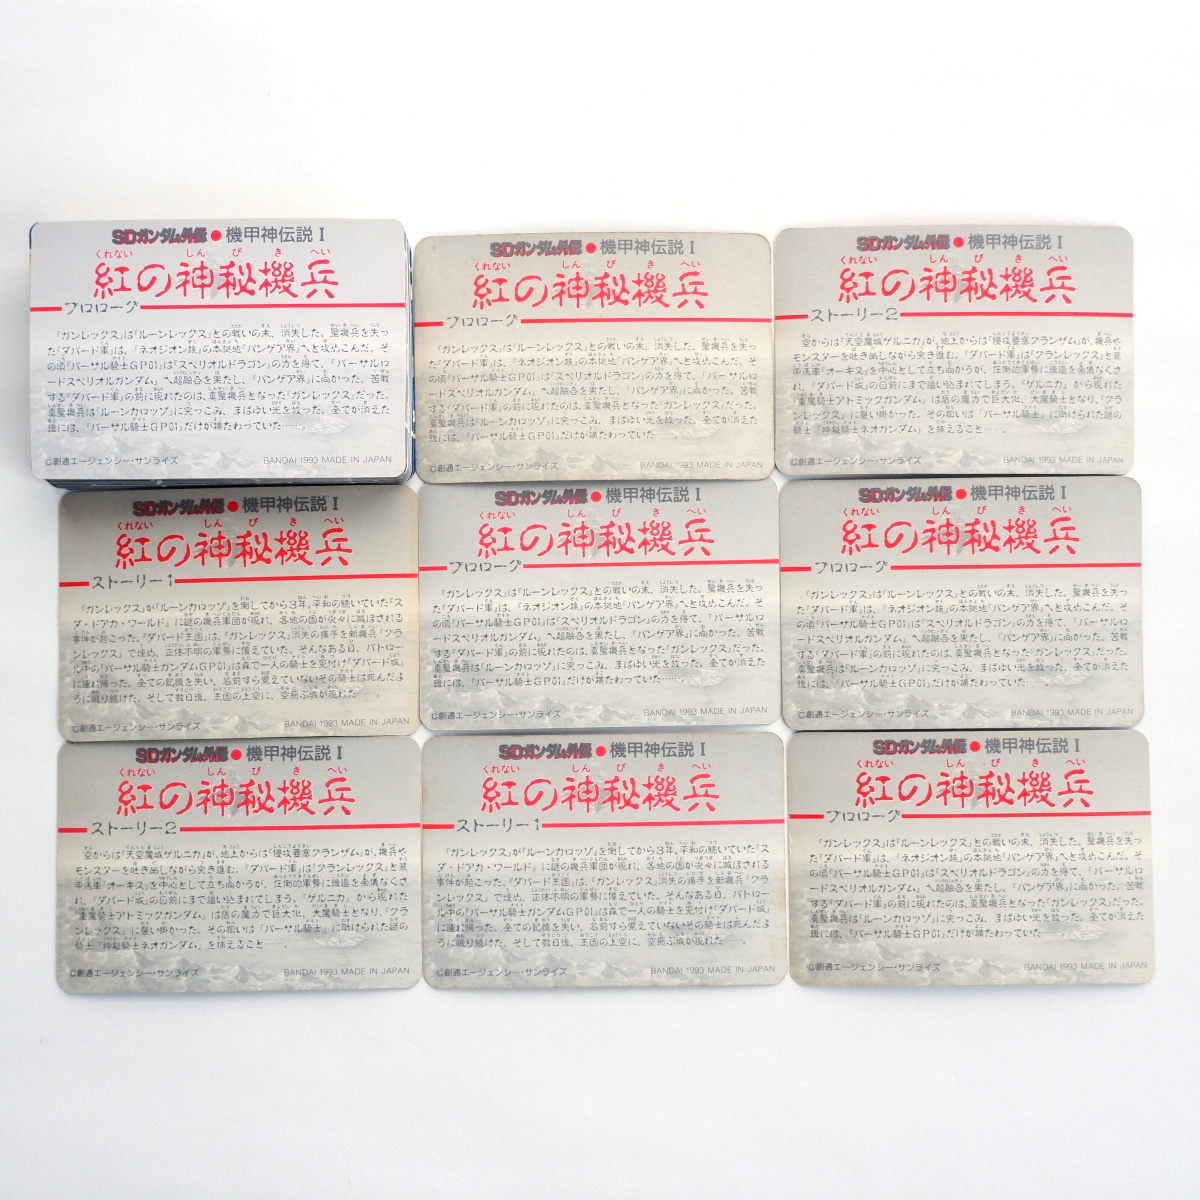 SDガンダム外伝●機甲神伝説Ⅰ
くれない しん ぴ き へい
紅の神秘機兵
プロローグ
『ガンレックス』は『ルーンレックス』との戦いの末、消失した。聖機兵を失っ
た『ダバード軍』は、『ネオジオン族』の本拠地『パンゲア界』へと攻めこんだ。そ
の頃『バーサル騎士GP01』は『スペリオルドラゴン』の力を得て、『バーサルロ
ードスペリオルガンダム』へ超融合を果たし、『パンゲア界』に向かった。苦戦
する『ダバード軍』の前に現れたのは、真聖機兵となった『ガンレックス』だった。
真聖機兵は『ルーンカロッゾ』に突っこみ、まばゆい光を放った。全てが消えた
後には、『バーサル騎士GP01』だけが横たわっていた……。
©創通エージェンシー・サンライズ BANDAI 1993 MADE IN JAPAN
SDガンダム外伝●機甲神伝説Ⅰ
くれない しん ぴ き へい
紅の神秘機兵
プロローグ
『ガンレックス』は『ルーンレックス』との戦いの末、消失した。聖機兵を失っ
た『ダバード軍』は、『ネオジオン族』の本拠地『パンゲア界』へと攻めこんだ。そ
の頃『バーサル騎士GP01』は『スペリオルドラゴン』の力を得て、『バーサルロ
ードスペリオルガンダム』へ超融合を果たし、『パンゲア界』に向かった。苦戦
する『ダバード軍』の前に現れたのは、真聖機兵となった『ガンレックス』だった。
真聖機兵は『ルーンカロッゾ』に突っこみ、まばゆい光を放った。全てが消えた
後には、『バーサル騎士GP01』だけが横たわっていた……。
©創通エージェンシー・サンライズ BANDAI 1993 MADE IN JAPAN
SDガンダム外伝●機甲神伝説Ⅰ
くれない しん ぴ き へい
紅の神秘機兵
ストーリー2
空からは『天空魔城ゲルニカ』が、地上からは『侵攻要塞クランザム』が、機兵や
モンスターを吐き出しながら突き進む。『ダバード軍』は『クランレックス』と装
甲馬車『オーキス』を中心として立ち向かうが、圧倒的軍勢に後退を余儀なくさ
れ、『ダバード城』の目前にまで追い込まれてしまう。『ゲルニカ』から現れた
『重魔騎士アトミックガンダム』は盾の魔力で巨大化、大魔騎士となり、『クラ
ンレックス』に襲い掛かった。その狙いは『バーサル騎士』に助けられた謎の
騎士『神秘騎士ネオガンダム』を捕えること……。
©創通エージェンシー・サンライズ BANDAI 1993 MADE IN JAPAN
SDガンダム外伝●機甲神伝説Ⅰ
くれない しん ぴ き へい
紅の神秘機兵
ストーリー1
『ガンレックス』が『ルーンカロッゾ』を倒してから3年、平和の続いていた『ス
ダ・ドアカ・ワールド』に謎の機兵軍団が現れ、各地の国が次々に滅ぼされる
事件が起こった。『ダバード王国』は、『ガンレックス』消失の痛手を新機兵『クラ
ンレックス』で埋め、正体不明の軍勢に備えていた。そんなある日、パトロー
ル中の『バーサル騎士ガンダムGP01』は森で一人の騎士を見付け『ダバード城』
に連れ帰った。全ての記憶を失い、名前すら覚えていないその騎士は死んだよ
うに眠り続けた。そして数日後、王国の上空に、空飛ぶ城が現れた……。
©創通エージェンシー・サンライズ BANDAI 1993 MADE IN JAPAN
SDガンダム外伝●機甲神伝説Ⅰ
くれない しん ぴ き へい
紅の神秘機兵
プロローグ
『ガンレックス』は『ルーンレックス』との戦いの末、消失した。聖機兵を失っ
た『ダバード軍』は、『ネオジオン族』の本拠地『パンゲア界』へと攻めこんだ。そ
の頃『バーサル騎士GP01』は『スペリオルドラゴン』の力を得て、『バーサルロ
ードスペリオルガンダム』へ超融合を果たし、『パンゲア界』に向かった。苦戦
する『ダバード軍』の前に現れたのは、真聖機兵となった『ガンレックス』だった。
真聖機兵は『ルーンカロッゾ』に突っこみ、まばゆい光を放った。全てが消えた
後には、『バーサル騎士GP01』だけが横たわっていた……。
©創通エージェンシー・サンライズ BANDAI 1993 MADE IN JAPAN
SDガンダム外伝●機甲神伝説Ⅰ
くれない しん ぴ き へい
紅の神秘機兵
プロローグ
『ガンレックス』は『ルーンレックス』との戦いの末、消失した。聖機兵を失っ
た『ダバード軍』は、『ネオジオン族』の本拠地『パンゲア界』へと攻めこんだ。そ
の頃『バーサル騎士GP01』は『スペリオルドラゴン』の力を得て、『バーサルロ
ードスペリオルガンダム』へ超融合を果たし、『パンゲア界』に向かった。苦戦
する『ダバード軍』の前に現れたのは、真聖機兵となった『ガンレックス』だった。
真聖機兵は『ルーンカロッゾ』に突っこみ、まばゆい光を放った。全てが消えた
後には、『バーサル騎士GP01』だけが横たわっていた……。
©創通エージェンシー・サンライズ BANDAI 1993 MADE IN JAPAN
SDガンダム外伝●機甲神伝説Ⅰ
くれない しん ぴ き へい
紅の神秘機兵
ストーリー2
空からは『天空魔城ゲルニカ』が、地上からは『侵攻要塞クランザム』が、機兵や
モンスターを吐き出しながら突き進む。『ダバード軍』は『クランレックス』と装
甲馬車『オーキス』を中心として立ち向かうが、圧倒的軍勢に後退を余儀なくさ
れ、『ダバード城』の目前にまで追い込まれてしまう。『ゲルニカ』から現れた
『重魔騎士アトミックガンダム』は盾の魔力で巨大化、大魔騎士となり、『クラ
ンレックス』に襲い掛かった。その狙いは『バーサル騎士』に助けられた謎の
騎士『神秘騎士ネオガンダム』を捕えること……。
©創通エージェンシー・サンライズ BANDAI 1993 MADE IN JAPAN
SDガンダム外伝●機甲神伝説Ⅰ
くれない しん ぴ き へい
紅の神秘機兵
ストーリー1
『ガンレックス』が『ルーンカロッゾ』を倒してから3年、平和の続いていた『ス
ダ・ドアカ・ワールド』に謎の機兵軍団が現れ、各地の国が次々に滅ぼされる
事件が起こった。『ダバード王国』は、『ガンレックス』消失の痛手を新機兵『クラ
ンレックス』で埋め、正体不明の軍勢に備えていた。そんなある日、パトロー
ル中の『バーサル騎士ガンダムGP01』は森で一人の騎士を見付け『ダバード城』
に連れ帰った。全ての記憶を失い、名前すら覚えていないその騎士は死んだよ
うに眠り続けた。そして数日後、王国の上空に、空飛ぶ城が現れた……。
©創通エージェンシー・サンライズ BANDAI 1993 MADE IN JAPAN
SDガンダム外伝●機甲神伝説Ⅰ
くれない しん ぴ き へい
紅の神秘機兵
プロローグ
『ガンレックス』は『ルーンレックス』との戦いの末、消失した。聖機兵を失っ
た『ダバード軍』は、『ネオジオン族』の本拠地『パンゲア界』へと攻めこんだ。そ
の頃『バーサル騎士GP01』は『スペリオルドラゴン』の力を得て、『バーサルロ
ードスペリオルガンダム』へ超融合を果たし、『パンゲア界』に向かった。苦戦
する『ダバード軍』の前に現れたのは、真聖機兵となった『ガンレックス』だった。
真聖機兵は『ルーンカロッゾ』に突っこみ、まばゆい光を放った。全てが消えた
後には、『バーサル騎士GP01』だけが横たわっていた……。
©創通エージェンシー・サンライズ BANDAI 1993 MADE IN JAPAN